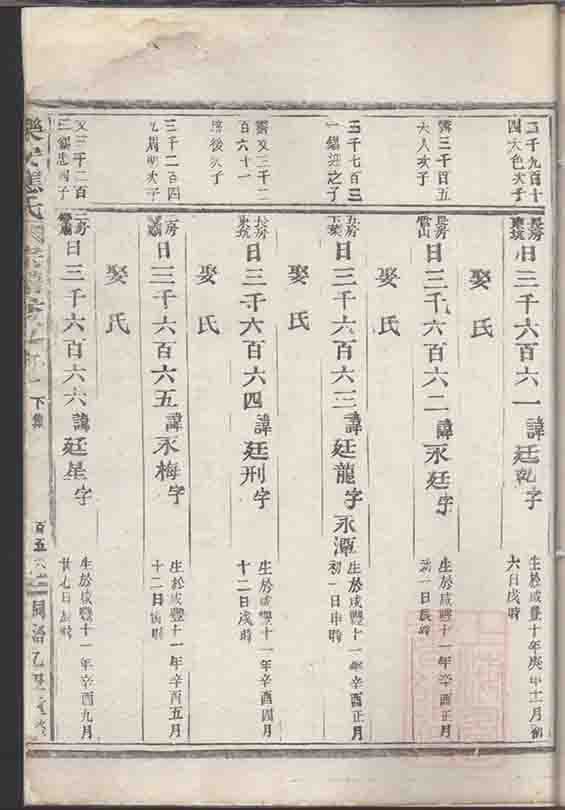 五千九百十
四大色次子
長房
東坑
日三千六百六一諱廷乾字
生於咸豐十年庚申十二月初
六日戌時
娶氏
霽三千百五
大人次子
長房
日三千六百六二諱永廷字
生於咸豐十一年辛酉正月
初一日辰時
娶氏
三千七百三
之子
五房
下葉
日三千六百六三諱廷龍字永潭
生於咸豐十一年辛酉正月
初一日申時
娶氏
霽又三千二
百六十一
後次子
長房
東坑
日三千六百六四諱廷刑字
生於咸豐十一年辛酉四月
十二日戌時
娶氏
三千二百四
九周明次子
房
日三千六百六五諱永梅字
生於咸豐十一年辛酉五月
十二日時
娶氏
又三千二百
三錫忠四子
二房
日三千六百六六諱廷星字
生於咸豐十一年辛酉九月
廿七日時
樂安蔣氏宗譜
下集
百五
同治乙丑重修